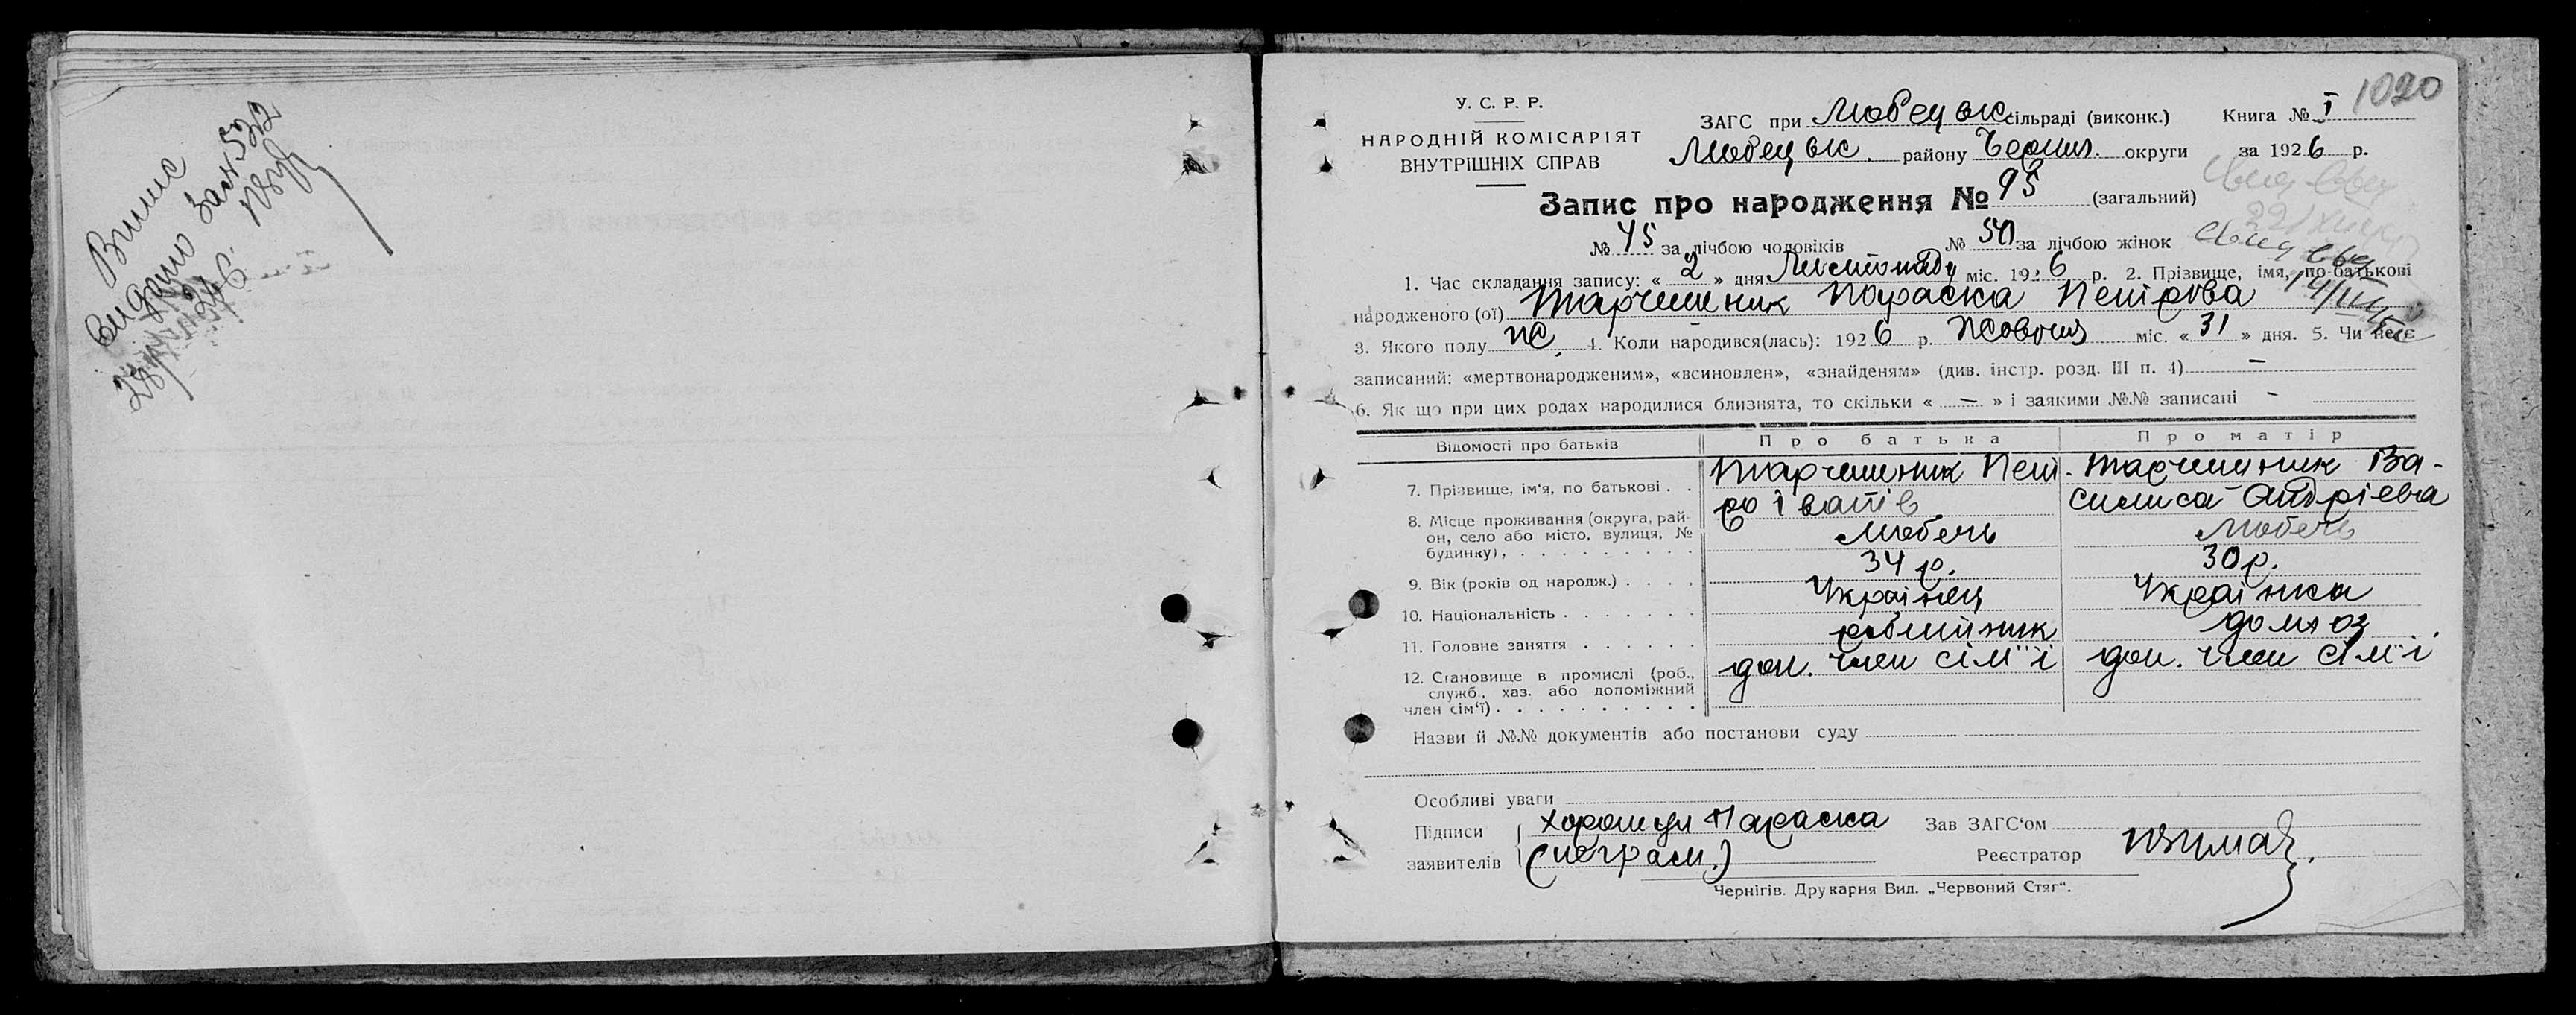 Випис
видано
У. С. Р. Р.
НАРОДНІЙ КОМІСАРІЯТ
ВНУТРІШНІХ СПРАВ
ЗАГС при Любецьк. сільраді (виконк.)
Книга № I
1020
Любецьк. району Черниг. округи
за 1926 р.
Запис про народження № 95 (загальний)
№ 45 за лічбою чоловіків № 50 за лічбою жінок
1. Час складання запису: « 2 » дня Листопаду міс. 1926 р. 2. Прізвище, імя, по-батькові
народженого (ої) Параска Петрова
3. Якого полу ж. 4. Коли народився(лась): 1926 р. Жовтня міс. « 31 » дня. 5. Чи не є
записаний: «мертвонародженим», «всиновлен», «знайденям» (див. інстр. розд. III п. 4) —
6. Як що при цих родах народилися близнята, то скільки « — » і за якими №№ записані -
Відомості про батьків
Про батька
Про матір
7. Прізвище, ім'я, по батькові . .
Пет-
ро Іванів
Ва-
силиса Андріева
8. Місце проживання (округа, рай-
он, село або місто, вулиця, №
будинку), . . . . . . . . .
Любечь
Любечь
9. Вік (років од народж.) . . . .
34 р.
30 р.
10. Національність . . . . . . .
Українец
Українка
11. Головне заняття . . . . . .
робитник
домхоз.
12. Становище в промислі (роб.,
служб., хаз. або допоміжний
член сім'ї) . . . . . . . . . .
доп. член сім'ї
доп. член сім'ї
Назви й №№ документів або постанови суду
Особливі уваги
Підписи
заявителів
Параска
(неграм.)
Зав ЗАГС'ом
Реєстратор
Чернігів. Друкарня Вид. „Червоний Стяг".